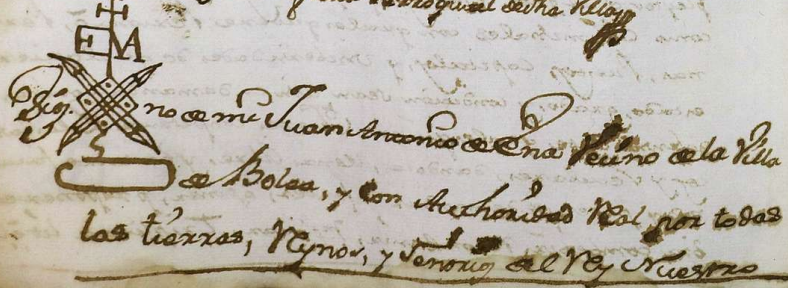 Parroquial de dha Villa
E A
Sig. no de mi Juan Antonio de Ena Vecino de la Villa
de Bolea, y con Authoridad Real por todas
las tierras, Reynos, y Señorios del Rey Nuestro